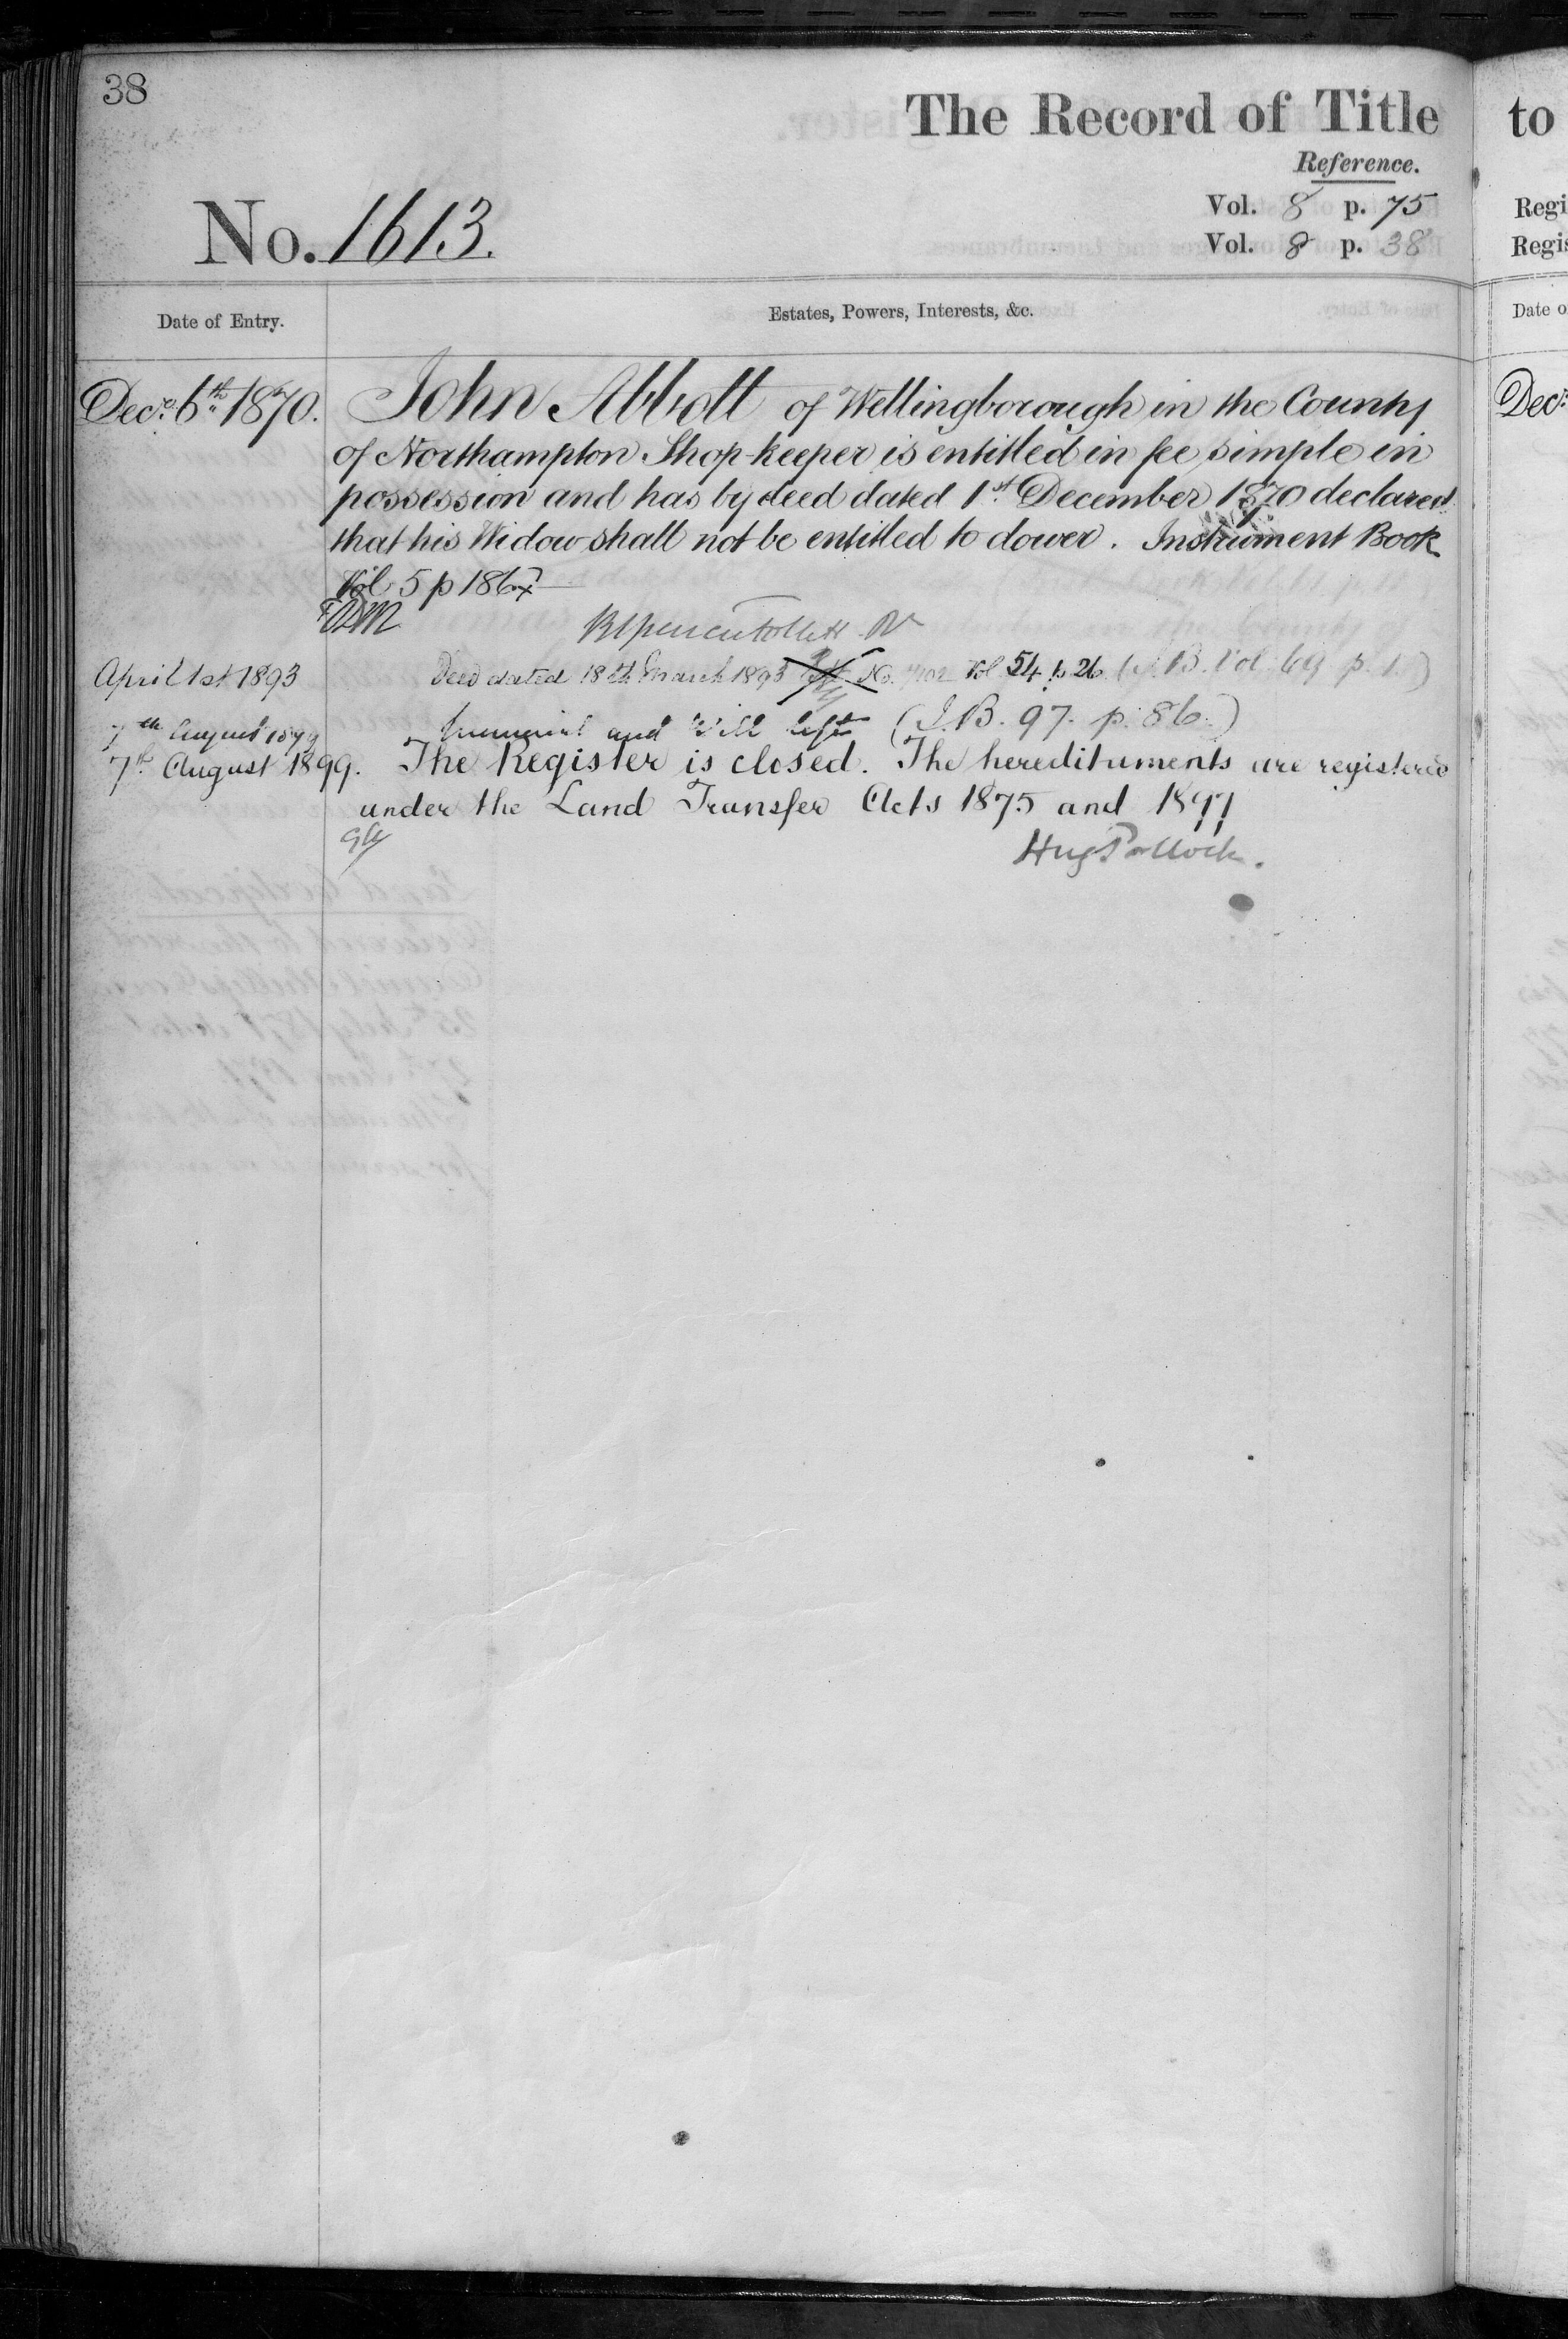 38
The Record of Title
to
Reference.
Vol. 8 p. 75
Vol. 8 p. 38
No. 1613.
Regi
Regis
Date of Entry.
Estates, Powers, Interests, &c.
Date o
Decr. 6th 1870.
John Abbott of Wellingborough in the County
of Northampton Shop-keeper is entitled in fee simple in
possession and has by deed dated 1st December 1870 declared
that his Widow shall not be entitled to dower. Instrument Book
Vol 5 p 1867
Decr
April 1st 1893
Deed dated 18th March 1893 No. Vol 54 p 26 (I.B. Vol. 69 p. 1.)
7th August 1899
and Will left (I.B. 97. p. 86.)
7th August 1899.
The Register is closed. The hereditaments are registered
under the Land Transfer Acts 1875 and 1897
Hugh Pollock.